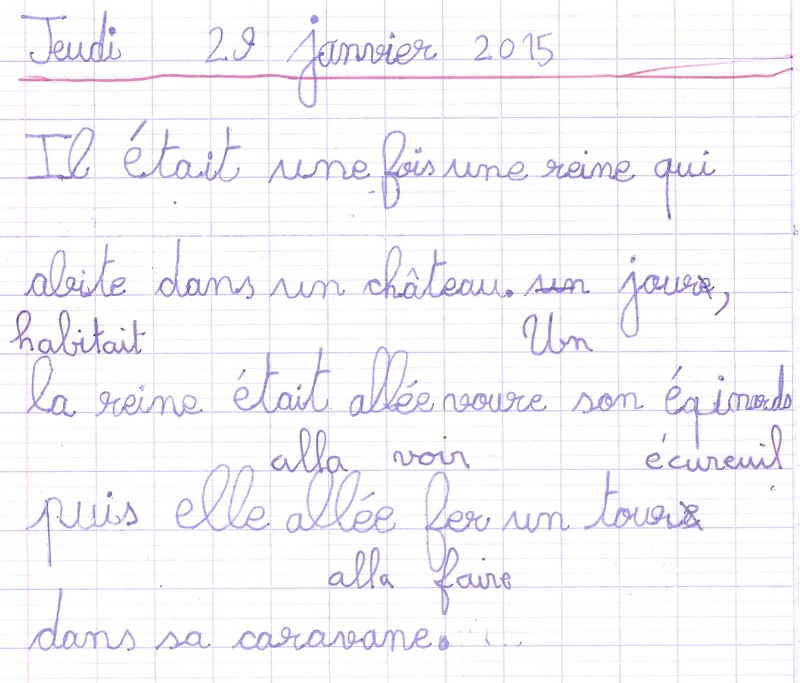 Jeudi 29 janvier 2015
Il était une fois une reine qui
abite dans un château. un joure,
habitait Un
la reine était allée voure son éqinords
alla voir écureuil
puis elle allée fer un toure
alla faire
dans sa caravane.